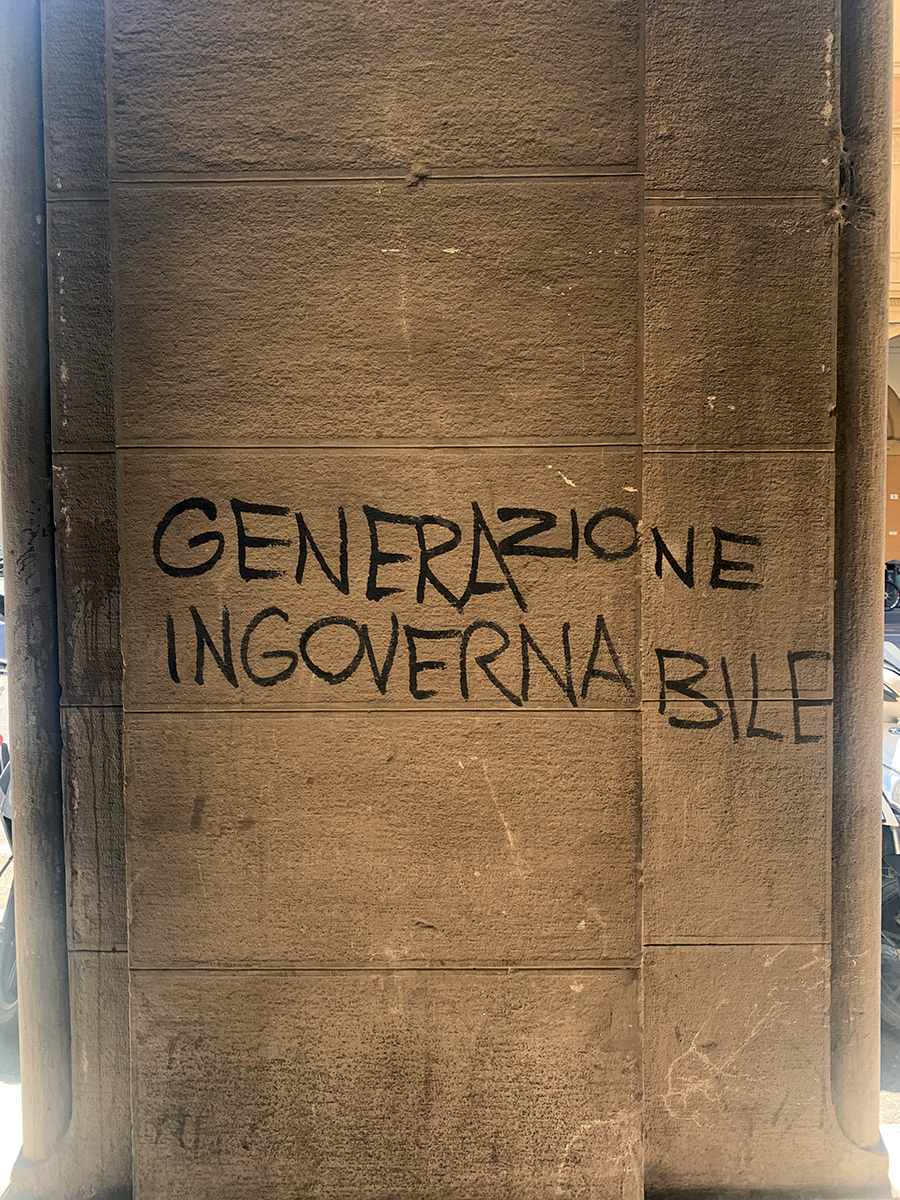 GENERAZIONE
INGOVERNABILE